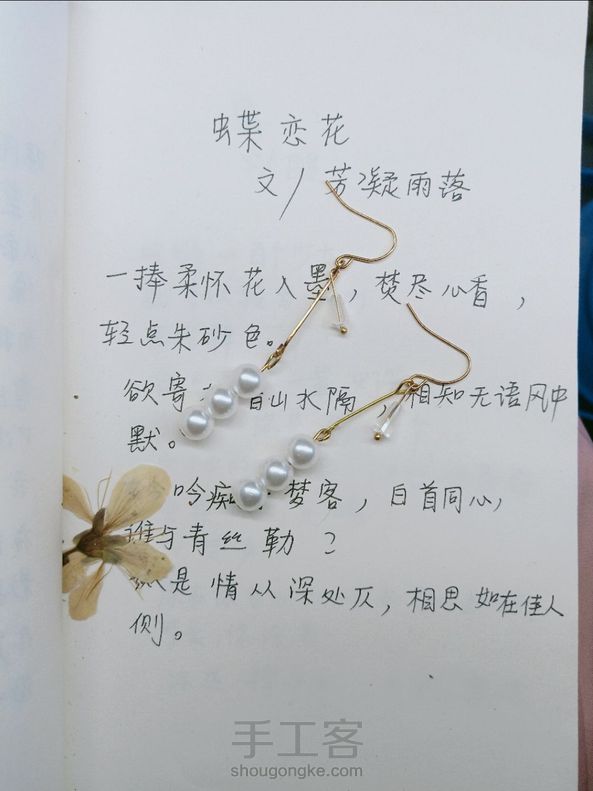 蝶恋花
文/芳凝雨落
一捧柔怀花入墨，焚尽心香，
轻点朱砂色。
欲寄 山水隔，相知无语风中
默。
吟痴 梦客，白首同心，
谁与青丝勒？
是情从深处仄，相思如在佳人
侧。
手工客
shougongke.com